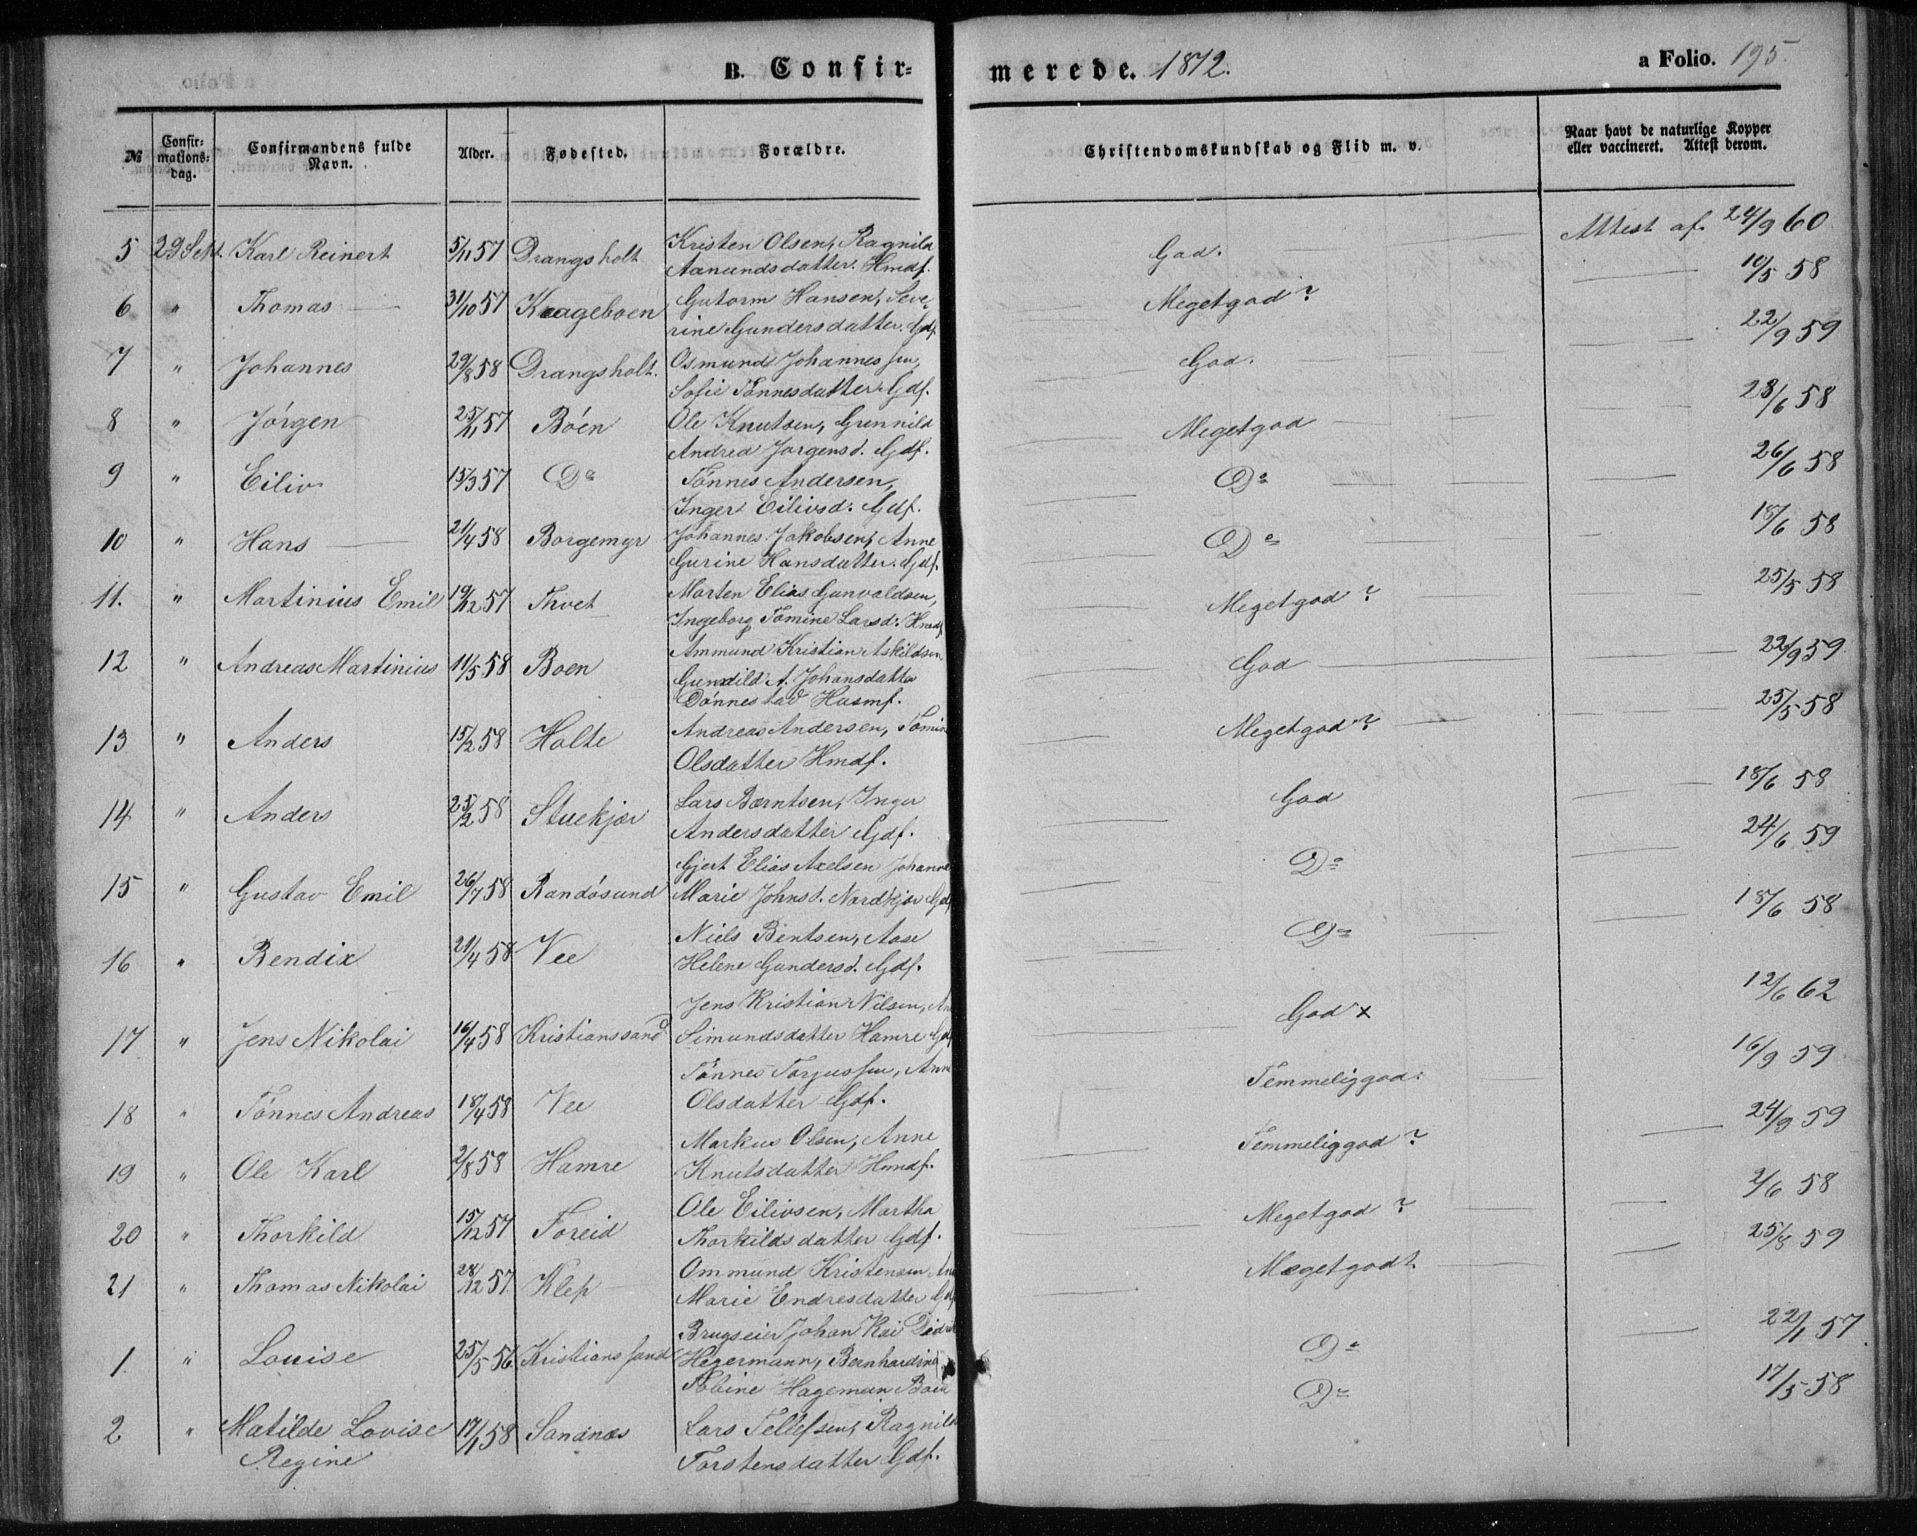 B. Confir- merede. 1872. a Folio. 195
№ Confir-mations-dag. Confirmandens fulde Navn. Alder. Fødested. Forældre. Christendomskundskab og Flid m. v. Naar havt de naturlige Kopper eller vaccineret. Attest derom.
5 29 Sept. Karl Reinert 5/11 57 Drangsholt Kristen Olsen, Ragnild God. Attest af. 24/9 60
Aanundsdatter. Hmdf.
6 " Thomas 31/10 57 Kraageboen Gutorm Hansen, Seve- Megetgod? 10/5 58
rine Gundersdatter. Gdf.
7 " Johannes 29/8 58 Drangsholt. Osmund Johannessen, God. 22/9 59
Sofie Tønnesdatter. Gdf.
8 " Jörgen 25/11 57 Böen Ole Knutsen, Gunnild Megetgod 23/6 58
Andrea Jorgensd. Gdf.
9 " Eiliv 15/3 57 Do Tönnes Andersen, Do 26/6 58
Inger Eilivsd: Gdf.
10 " Hans 21/4 58 Borgemyr Johannes Jakobsen, Anne Do 18/6 58
Gurine Hansdatter. Gdf.
11. " Martinius Emil 19/12 57 Thvet Morten Elias Gunvaldsen, Megetgod? 25/5 58
Ingeborg Tomine Larsd: Hmdf
12 " Andreas Martinius 11/5 58 Boen Ammund Kristian Askildsen God 22/9 59
Gunnild A. Johansdatter
Dönnestad Husmf.
13 " Anders 15/2 58 Holte Andreas Andersen, Tomine Megetgod? 25/5 58
Olsdatter Hmdf.
14 " Anders 25/2 58 Stuekjær Lars Bærntsen, Inger God 18/6 58
Andersdatter Gdf.
15 " Gustav Emil 26/7 58 Randösund Gjert Elias Axelsen Johanne Do 24/6 59
Marie Johnsd. Nordkjær Gdf
16 " Bendix 21/4 58 Vee Niels Bentsen, Aase Do 18/6 58
Helene Gundersd. Gdf.
17 " Jens Nikolai 16/4 58 Kristianssand Jens Kristian Nilsen, An God x 12/6 62
Simundsdatter Hamre Gdf
18 " Tönnes Andreas 18/4 58 Vee Tönnes Torjussen, Anne Temmeliggod: 16/9 59
Olsdatter Gdf.
19 " Ole Karl 2/8 58 Hamre Markus Olsen, Anne Temmeliggod? 24/9 59
Knutsdatter Hmdf.
20 " Thorkild 15/12 57 Foreid Ole Eilivsen, Martha Megetgod? 2/6 58
Thorkildsdatter Gdf.
21 " Thomas Nikolai 28/12 57 Klep Ommund Kristensen An Megetgodt 25/8 59
Marie Endresdatter Gdf
1. " Louise 25/5 56 Kristianssand Brugseier Johan Kai Didrik Do 22/1 57
Hegermann, Bernhardine
Tobine Hageman Boen
2 " Matilde Lovise 17/1 58 Sandnæs Lars Tellefsen, Ragnild Do 17/5 58
Regine Torstensdatter Gdf.